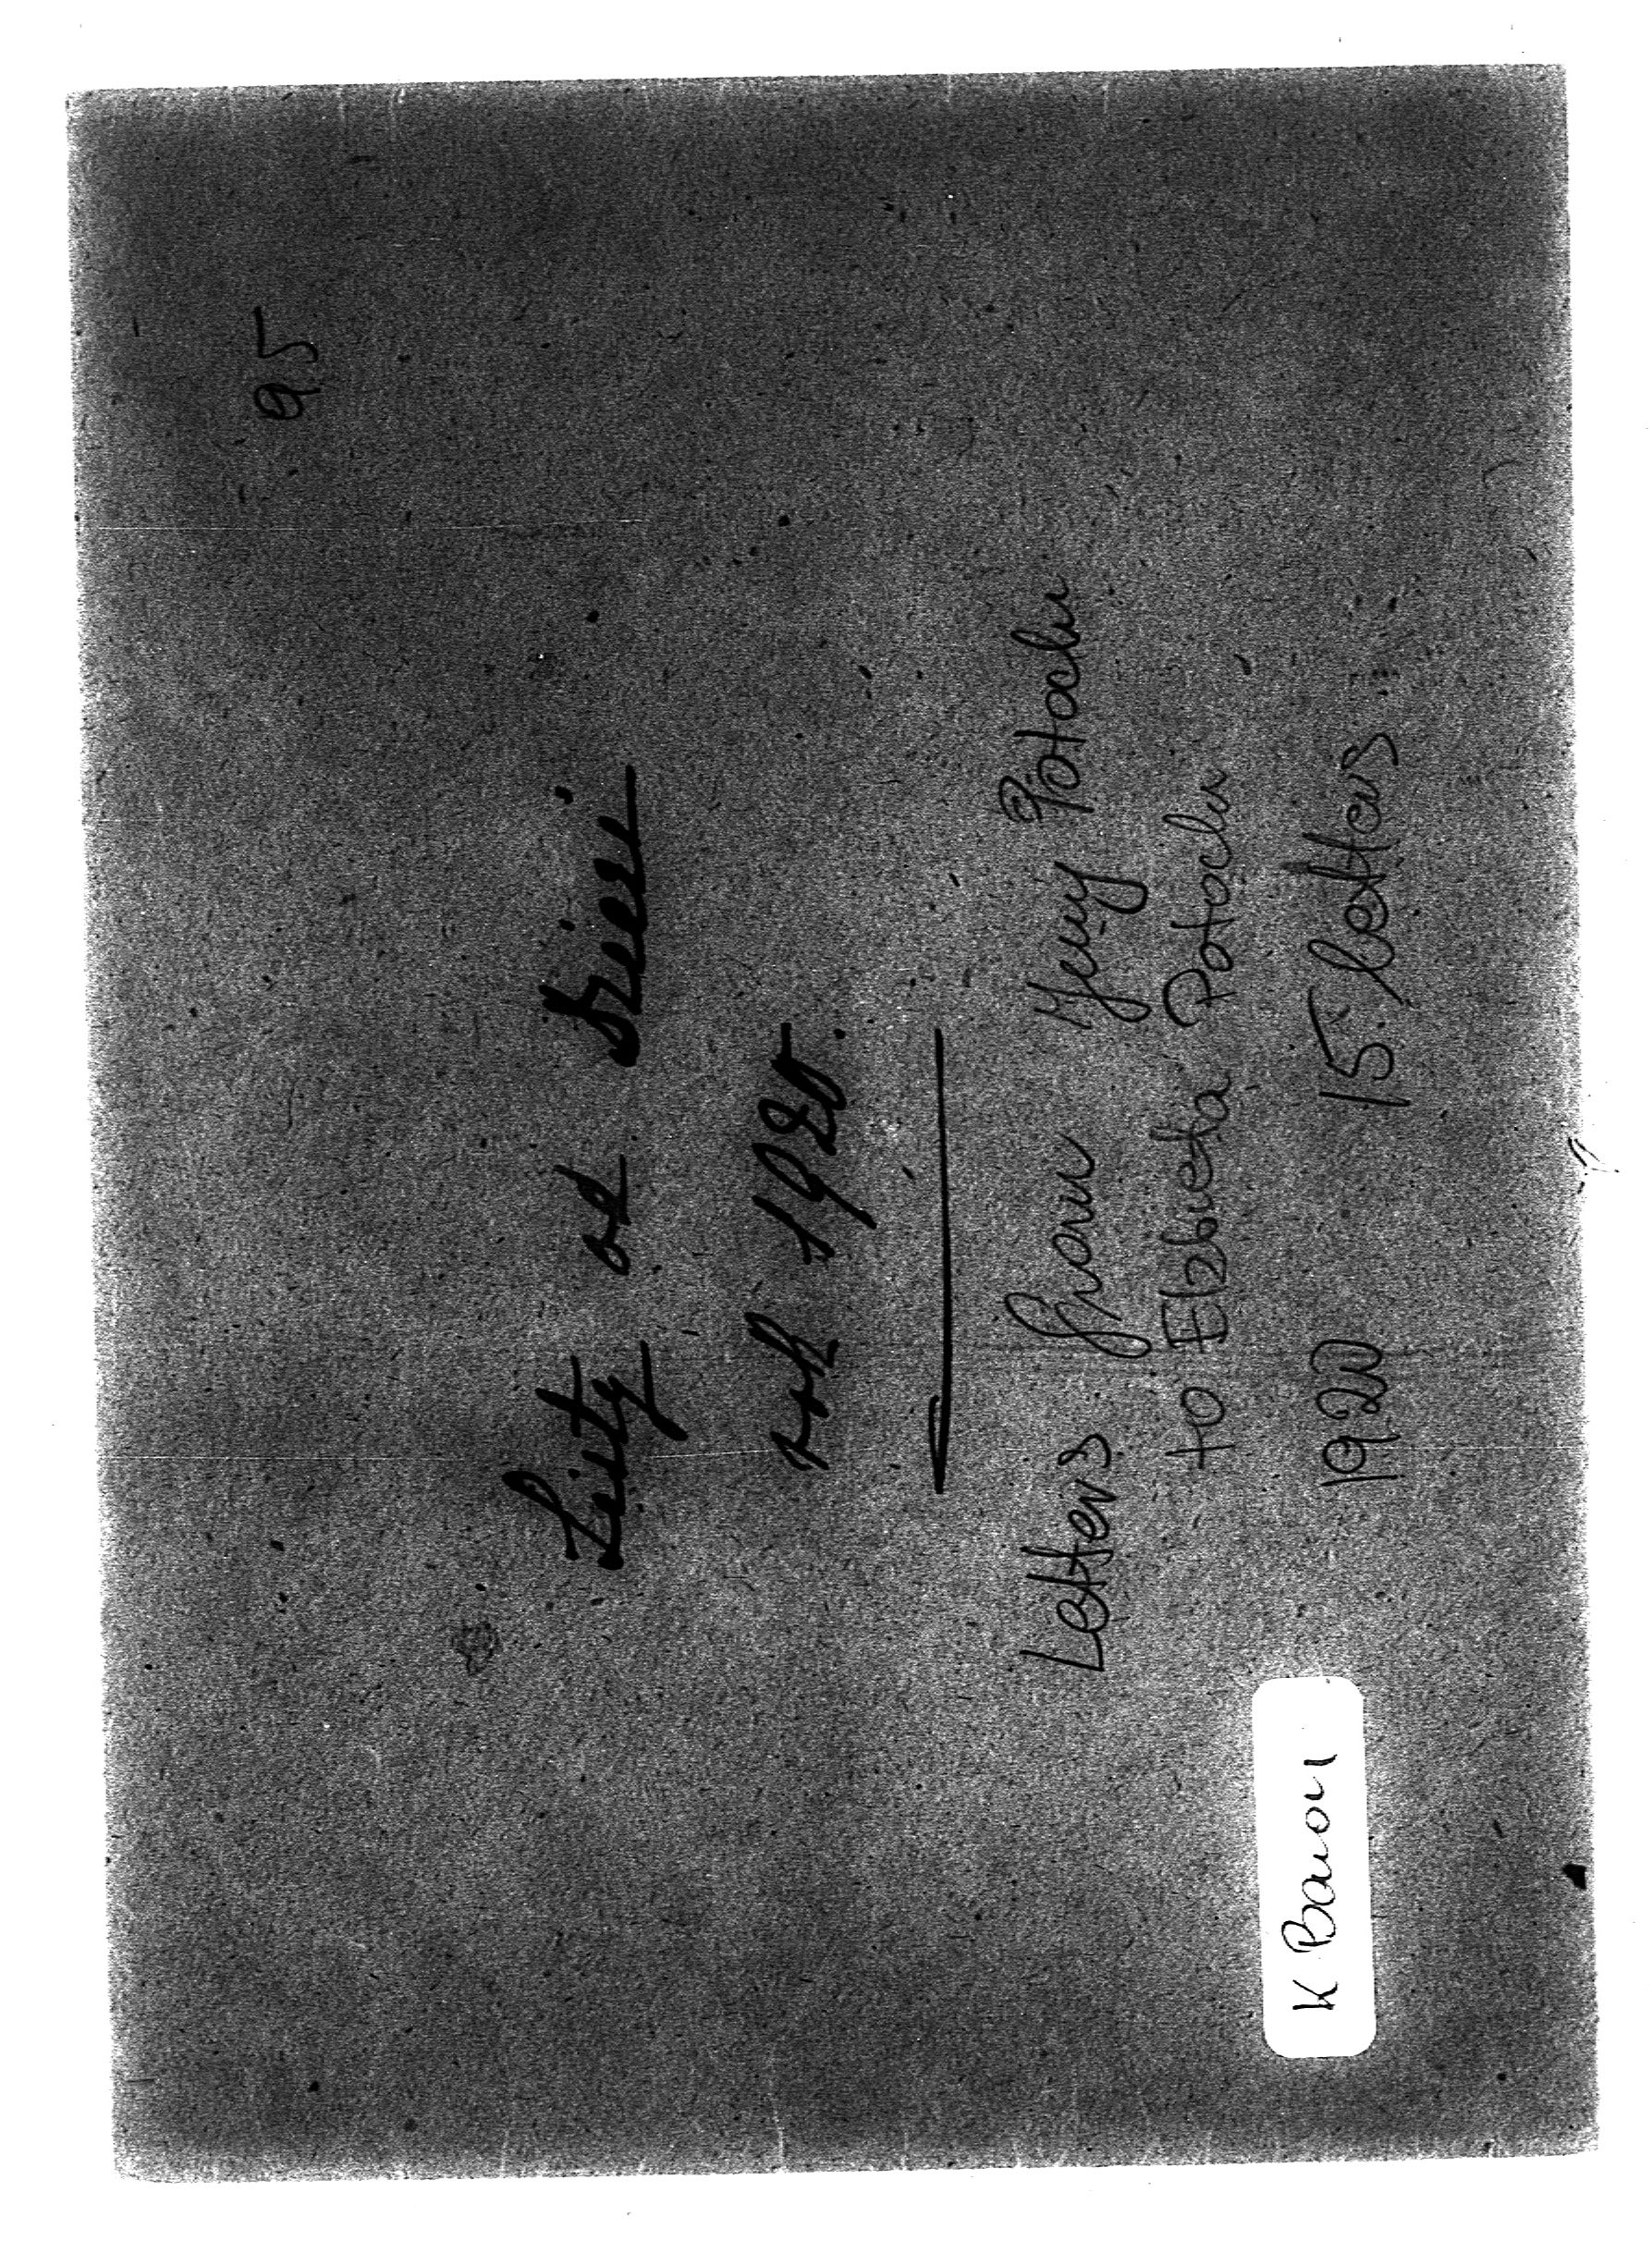 95
Listy od Dzieci
rok 1920.
Letters from Jerzy Potocki
to Elzbieta Potocki
1920 15 letters
K Baron